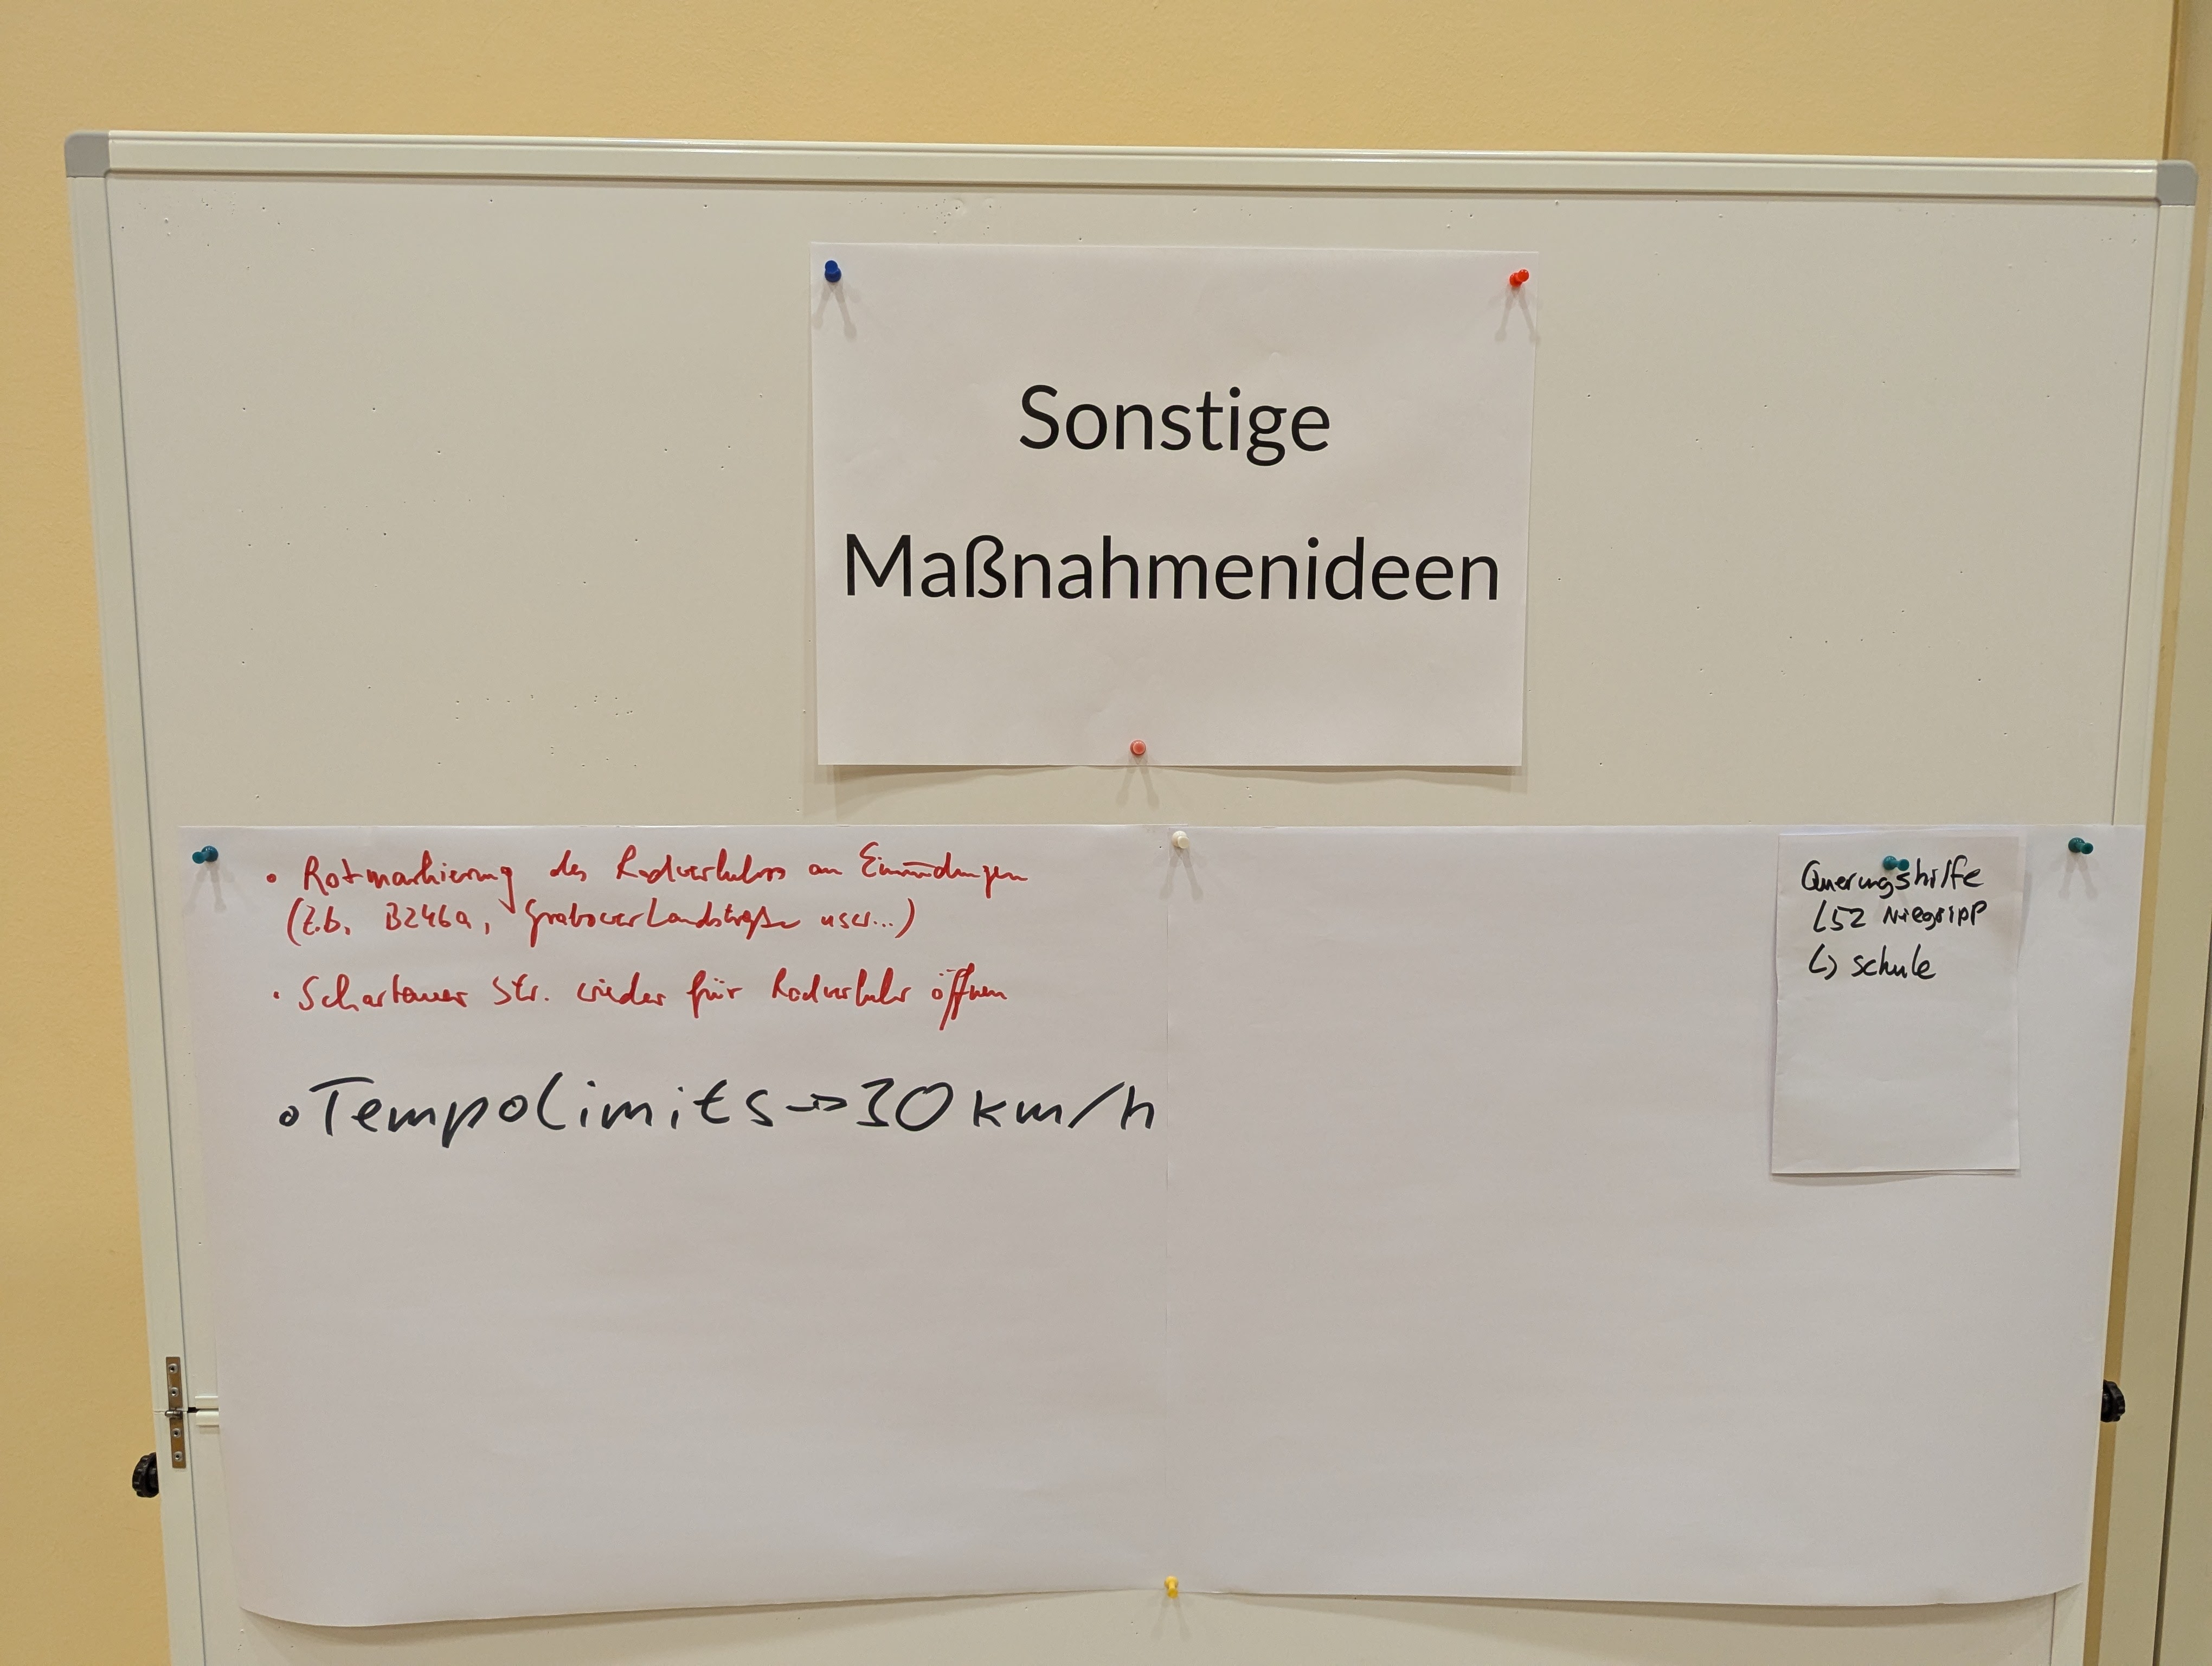 Sonstige
Maßnahmenideen
• Rotmarkierung des Radverkehrs an Einmündungen
(z.b. B246a, Grabower Landstraße usw...)
• Schartauer Str. wieder für Radverkehr öffnen
• Tempolimits → 30 km/h
Querungshilfe
L52 Niegripp
↳ schule